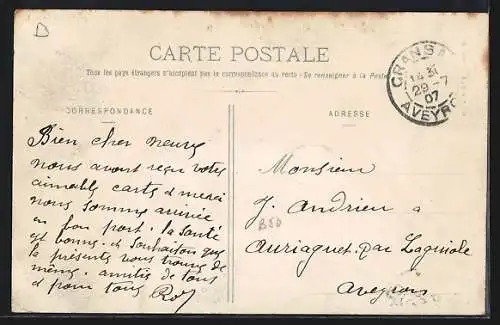 D
CARTE POSTALE
Tous les pays étrangers n'acceptent pas la correspondance au recto - Se renseigner à la Poste
CORRESPONDANCE
ADRESSE
GRANS
14 31
29 - 7
07
AVEYRO
Bien cher neveu
nous avont reçu votre
aimable carte d merci
nous somme arrivée
en bon port. la santé
est bonne. et souhaiton que
la présente vous trouve de
même. amitié de tous
d pour tous
Monsieur
J. Andrieu a
Auriaguet par Laguiole
Aveyron
B50